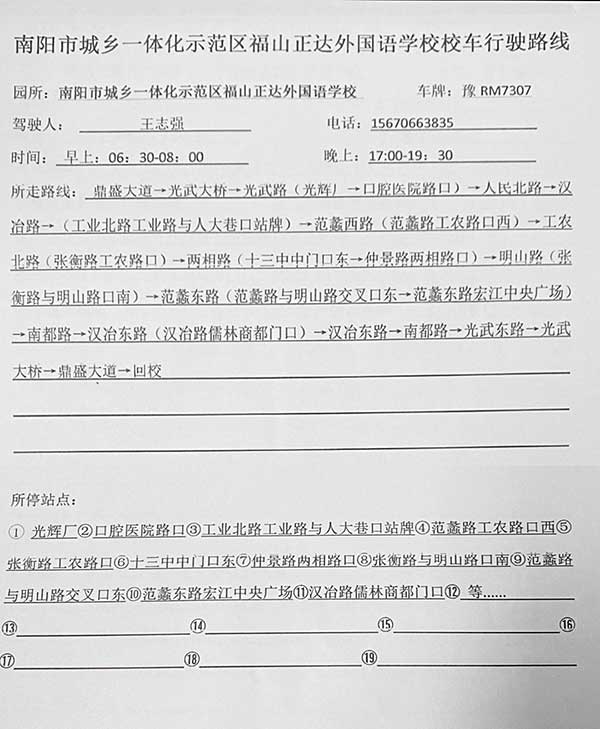 南阳市城乡一体化示范区福山正达外国语学校校车行驶路线
园所：南阳市城乡一体化示范区福山正达外国语学校 车牌：豫 RM7307
驾驶人： 王志强 电话：15670663835
时间： 早上：06：30-08：00 晚上：17:00-19：30
所走路线： 鼎盛大道→光武大桥→光武路（光辉厂→口腔医院路口）→人民北路→汉
冶路→（工业北路工业路与人大巷口站牌）→范蠡西路（范蠡路工农路口西）→工农
北路（张衡路工农路口）→两相路（十三中中门口东→仲景路两相路口）→明山路（张
衡路与明山路口南）→范蠡东路（范蠡路与明山路交叉口东→范蠡东路宏江中央广场）
→南都路→汉冶东路（汉冶路儒林商都门口）→汉冶东路→南都路→光武东路→光武
大桥→鼎盛大道→回校
所停站点：
① 光辉厂②口腔医院路口③工业北路工业路与人大巷口站牌④范蠡路工农路口西⑤
张衡路工农路口⑥十三中中门口东⑦仲景路两相路口⑧张衡路与明山路口南⑨范蠡路
与明山路交叉口东⑩范蠡东路宏江中央广场⑪汉冶路儒林商都门口⑫ 等......
⑬ ⑭ ⑮ ⑯
⑰ ⑱ ⑲